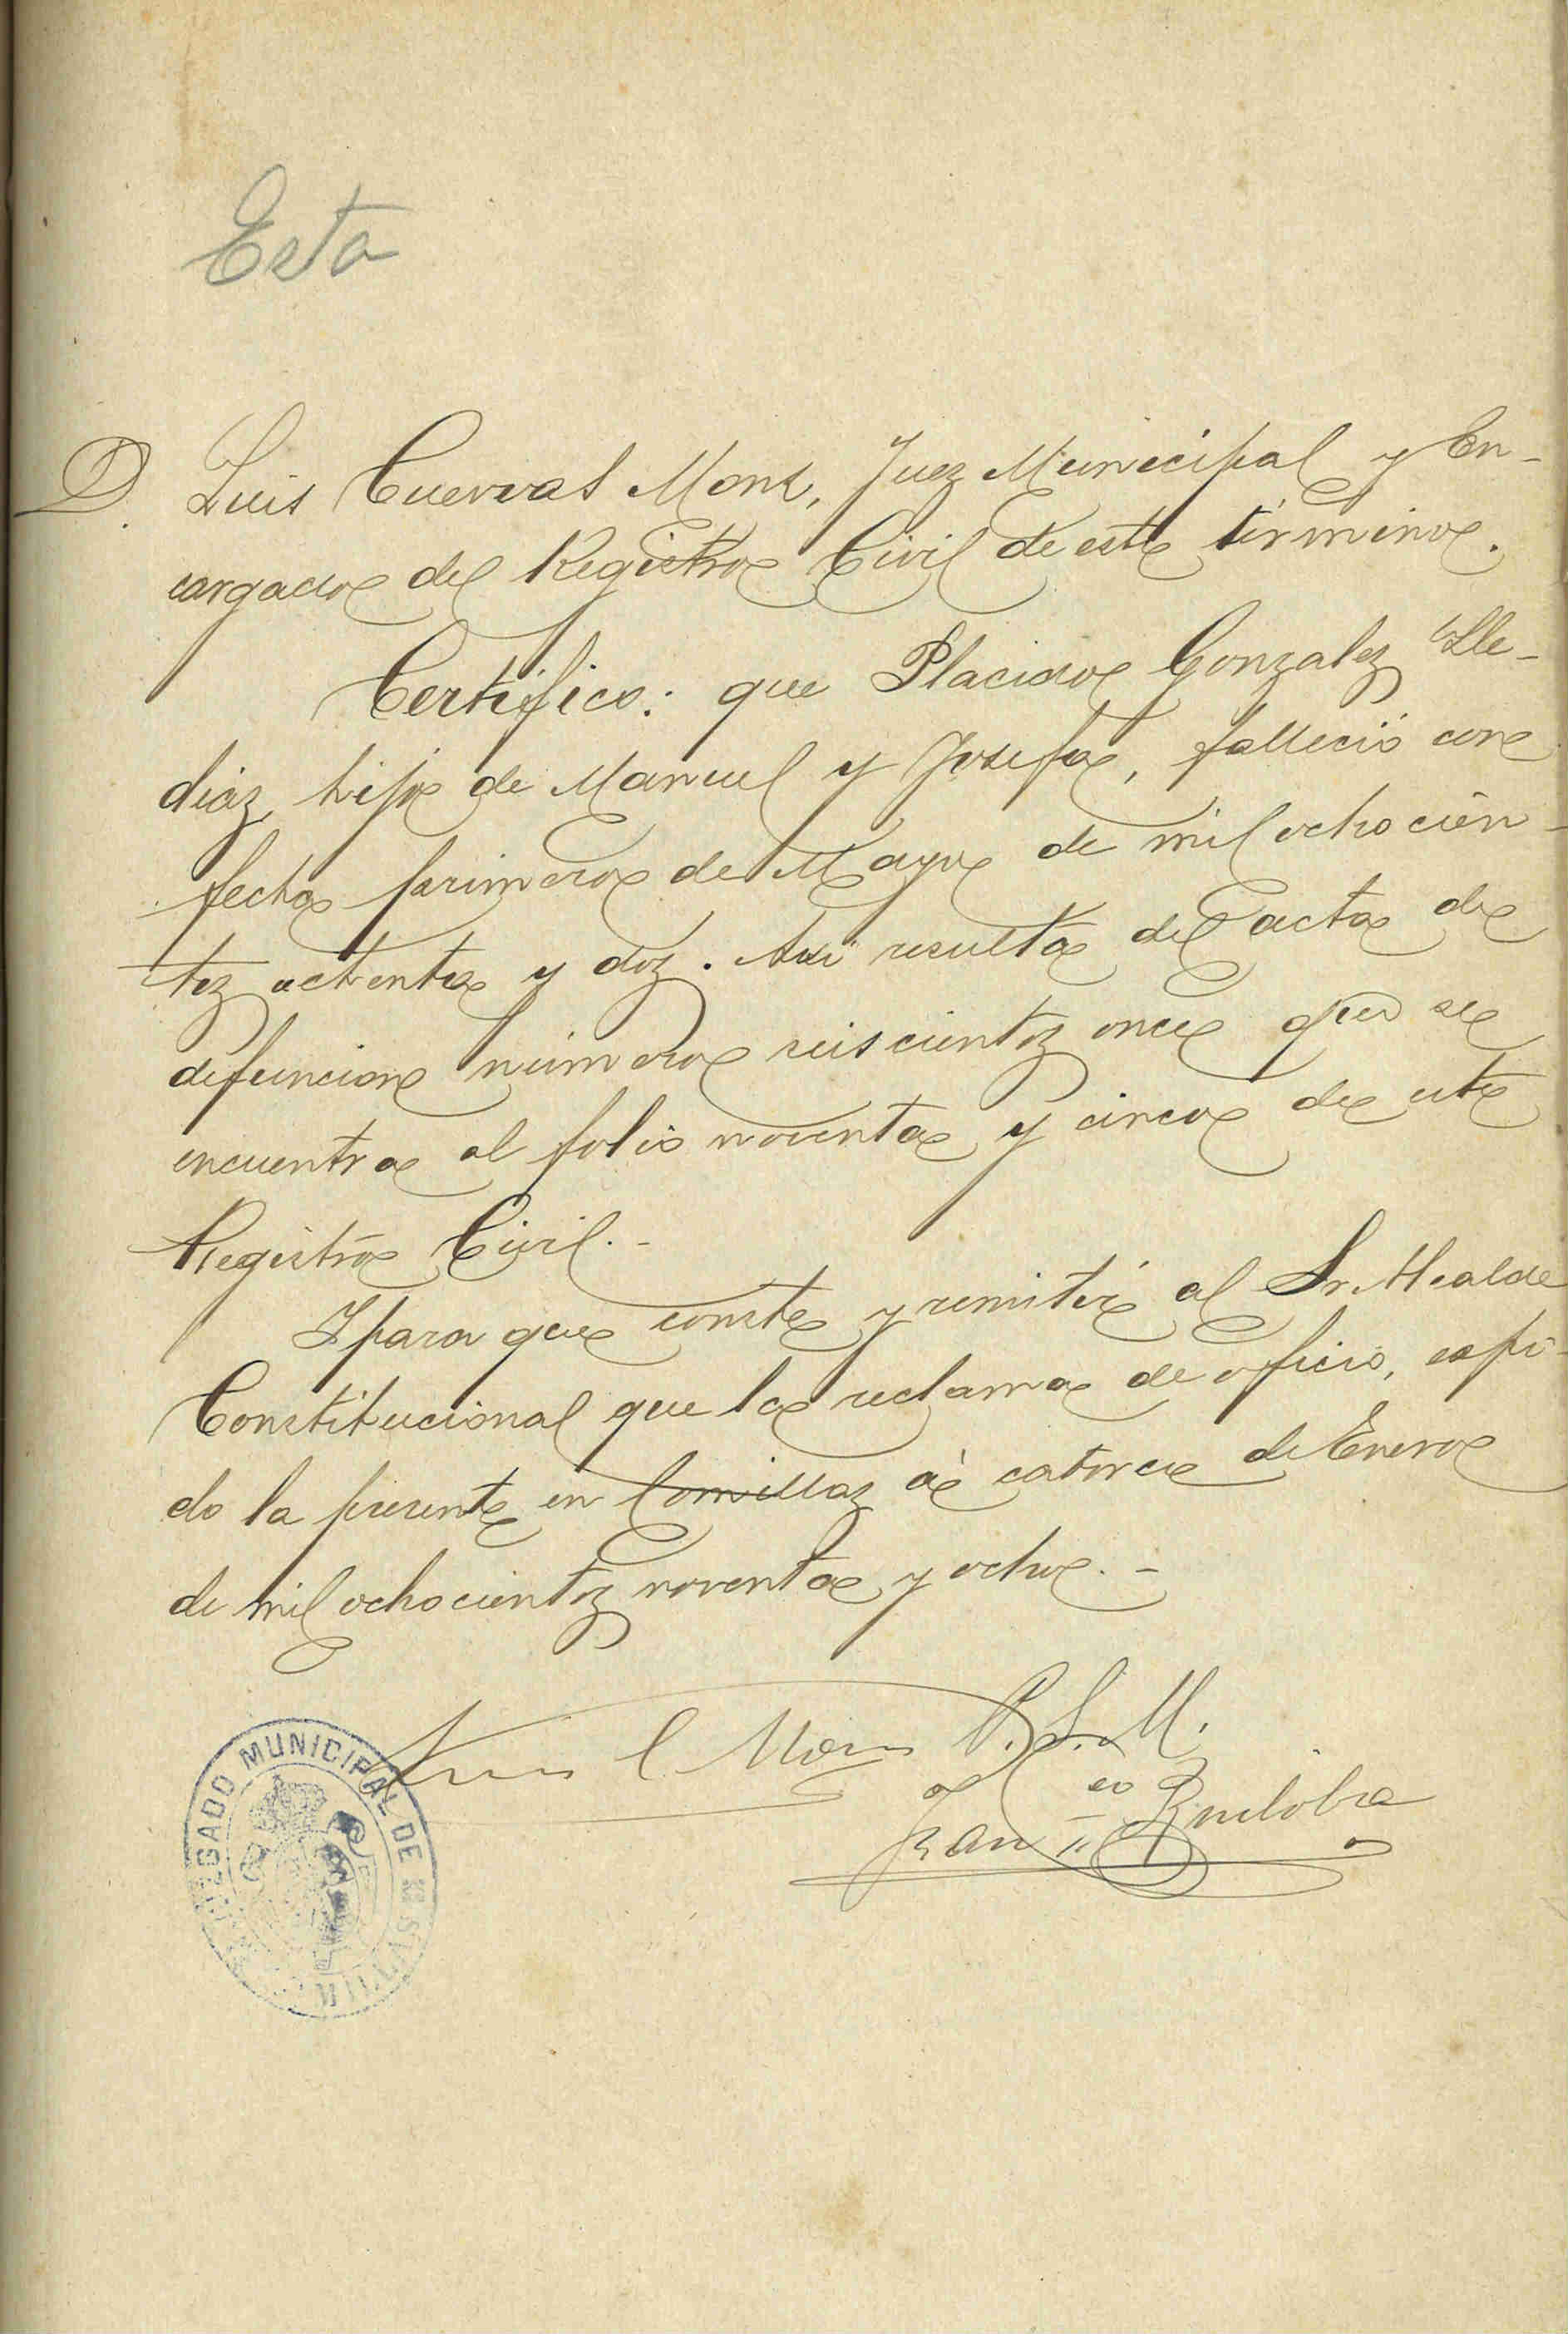 Esta
D. Luis Cuevas Mons, Juez Municipal y En-
cargado del Registro Civil de este término.
Certifico: que Placido Gonzalez Lle-
diaz, hijo de Manuel y Josefa, falleció con
fecha primero de Mayo de mil ochocien-
tos ochenta y dos. Asi resulta del acta de
defuncion número seiscientos once que se
encuentra al folio noventa y cinco de este
Registro Civil.-
Y para que conste y remitir al Sr. Alcalde
Constitucional que la reclama de oficio, espi-
do la presente en Comillas á catorce de Enero
de mil ochocientos noventa y ocho.-
Luis C Mons P.S.M.
Fran.co
JUZGADO MUNICIPAL DE